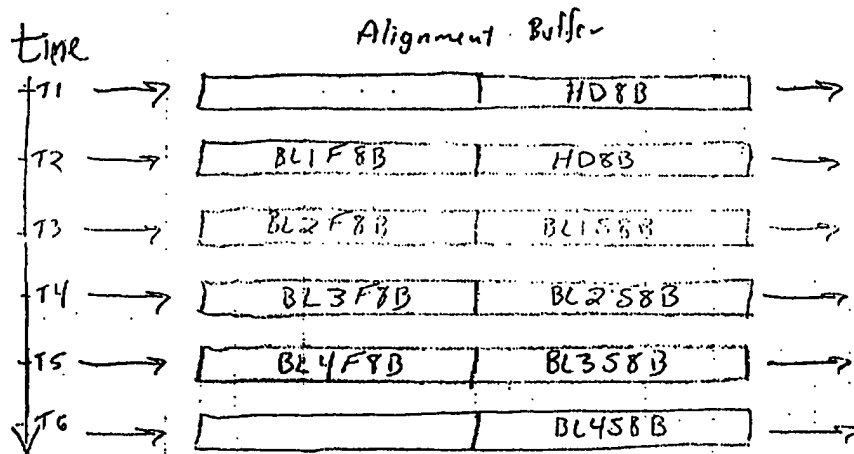 time
Alignment Buffer
T1 HD8B
T2 BL1F8B HD8B
T3 BL2F8B BL1S8B
T4 BL3F8B BL2S8B
T5 BL4F8B BL3S8B
T6 BL4S8B